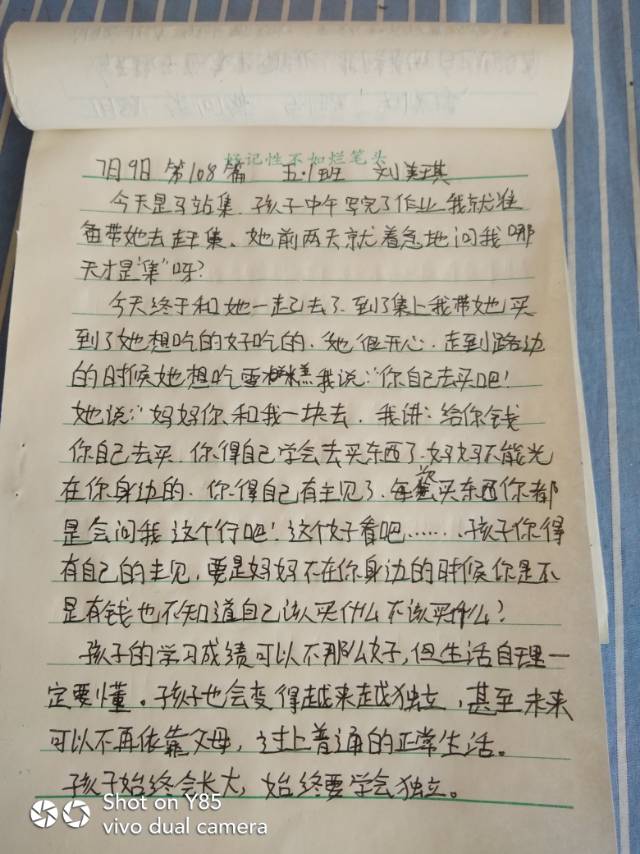 好记性不如烂笔头
7月9日 第108篇 五·1班 刘美琪
今天是马站集．孩子中午写完了作业，我就准
备带她去赶集。她前两天就着急地问我“哪
天才是“集”呀？
今天终于和她一起去了．到了集上我带她买
到了她想吃的好吃的．她很开心．走到路边
的时候她想吃雪糕我说：“你自己去买吧！
她说：“妈妈你和我一块去．我讲：给你钱
你自己去买．你得自己学会去买东西了．妈妈不能光
在你身边的．你得自己有主见了．每次买东西你都
是会问我 这个行吧！这个好看吧……．孩子你得
有自己的主见，要是妈妈不在你身边的时候你是不
是有钱也不知道自己该买什么不该买什么？
孩子的学习成绩可以不那么好，但生活自理一
定要懂。孩子也会变得越来越独立，甚至未来
可以不再依靠父母，过上普通的正常生活。
孩子始终会长大，始终要学会独立。
Shot on Y85
vivo dual camera